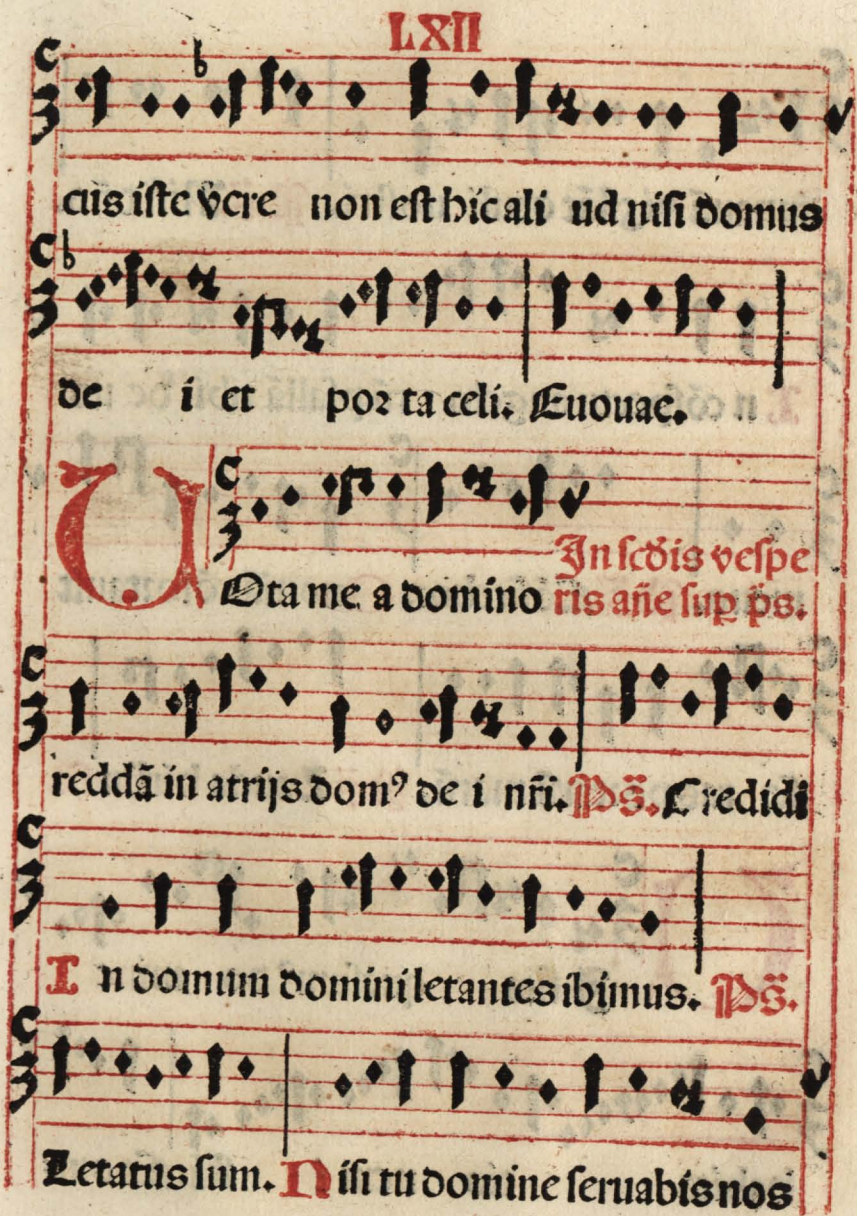 LXII
cus iste vere non est hic ali ud nisi domus
de i et por ta celi. Euouae.
In scd̄is vespe
VOta me a domino ris añe sup p̄s.
reddā in atrijs domꝰ de i nr̄i. Ps̄. Credidi
In domum domini letantes ibimus. Ps̄.
Letatus sum. Nisi tu domine seruabis nos